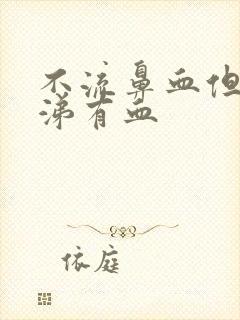 不流鼻血但
涕有血
依庭